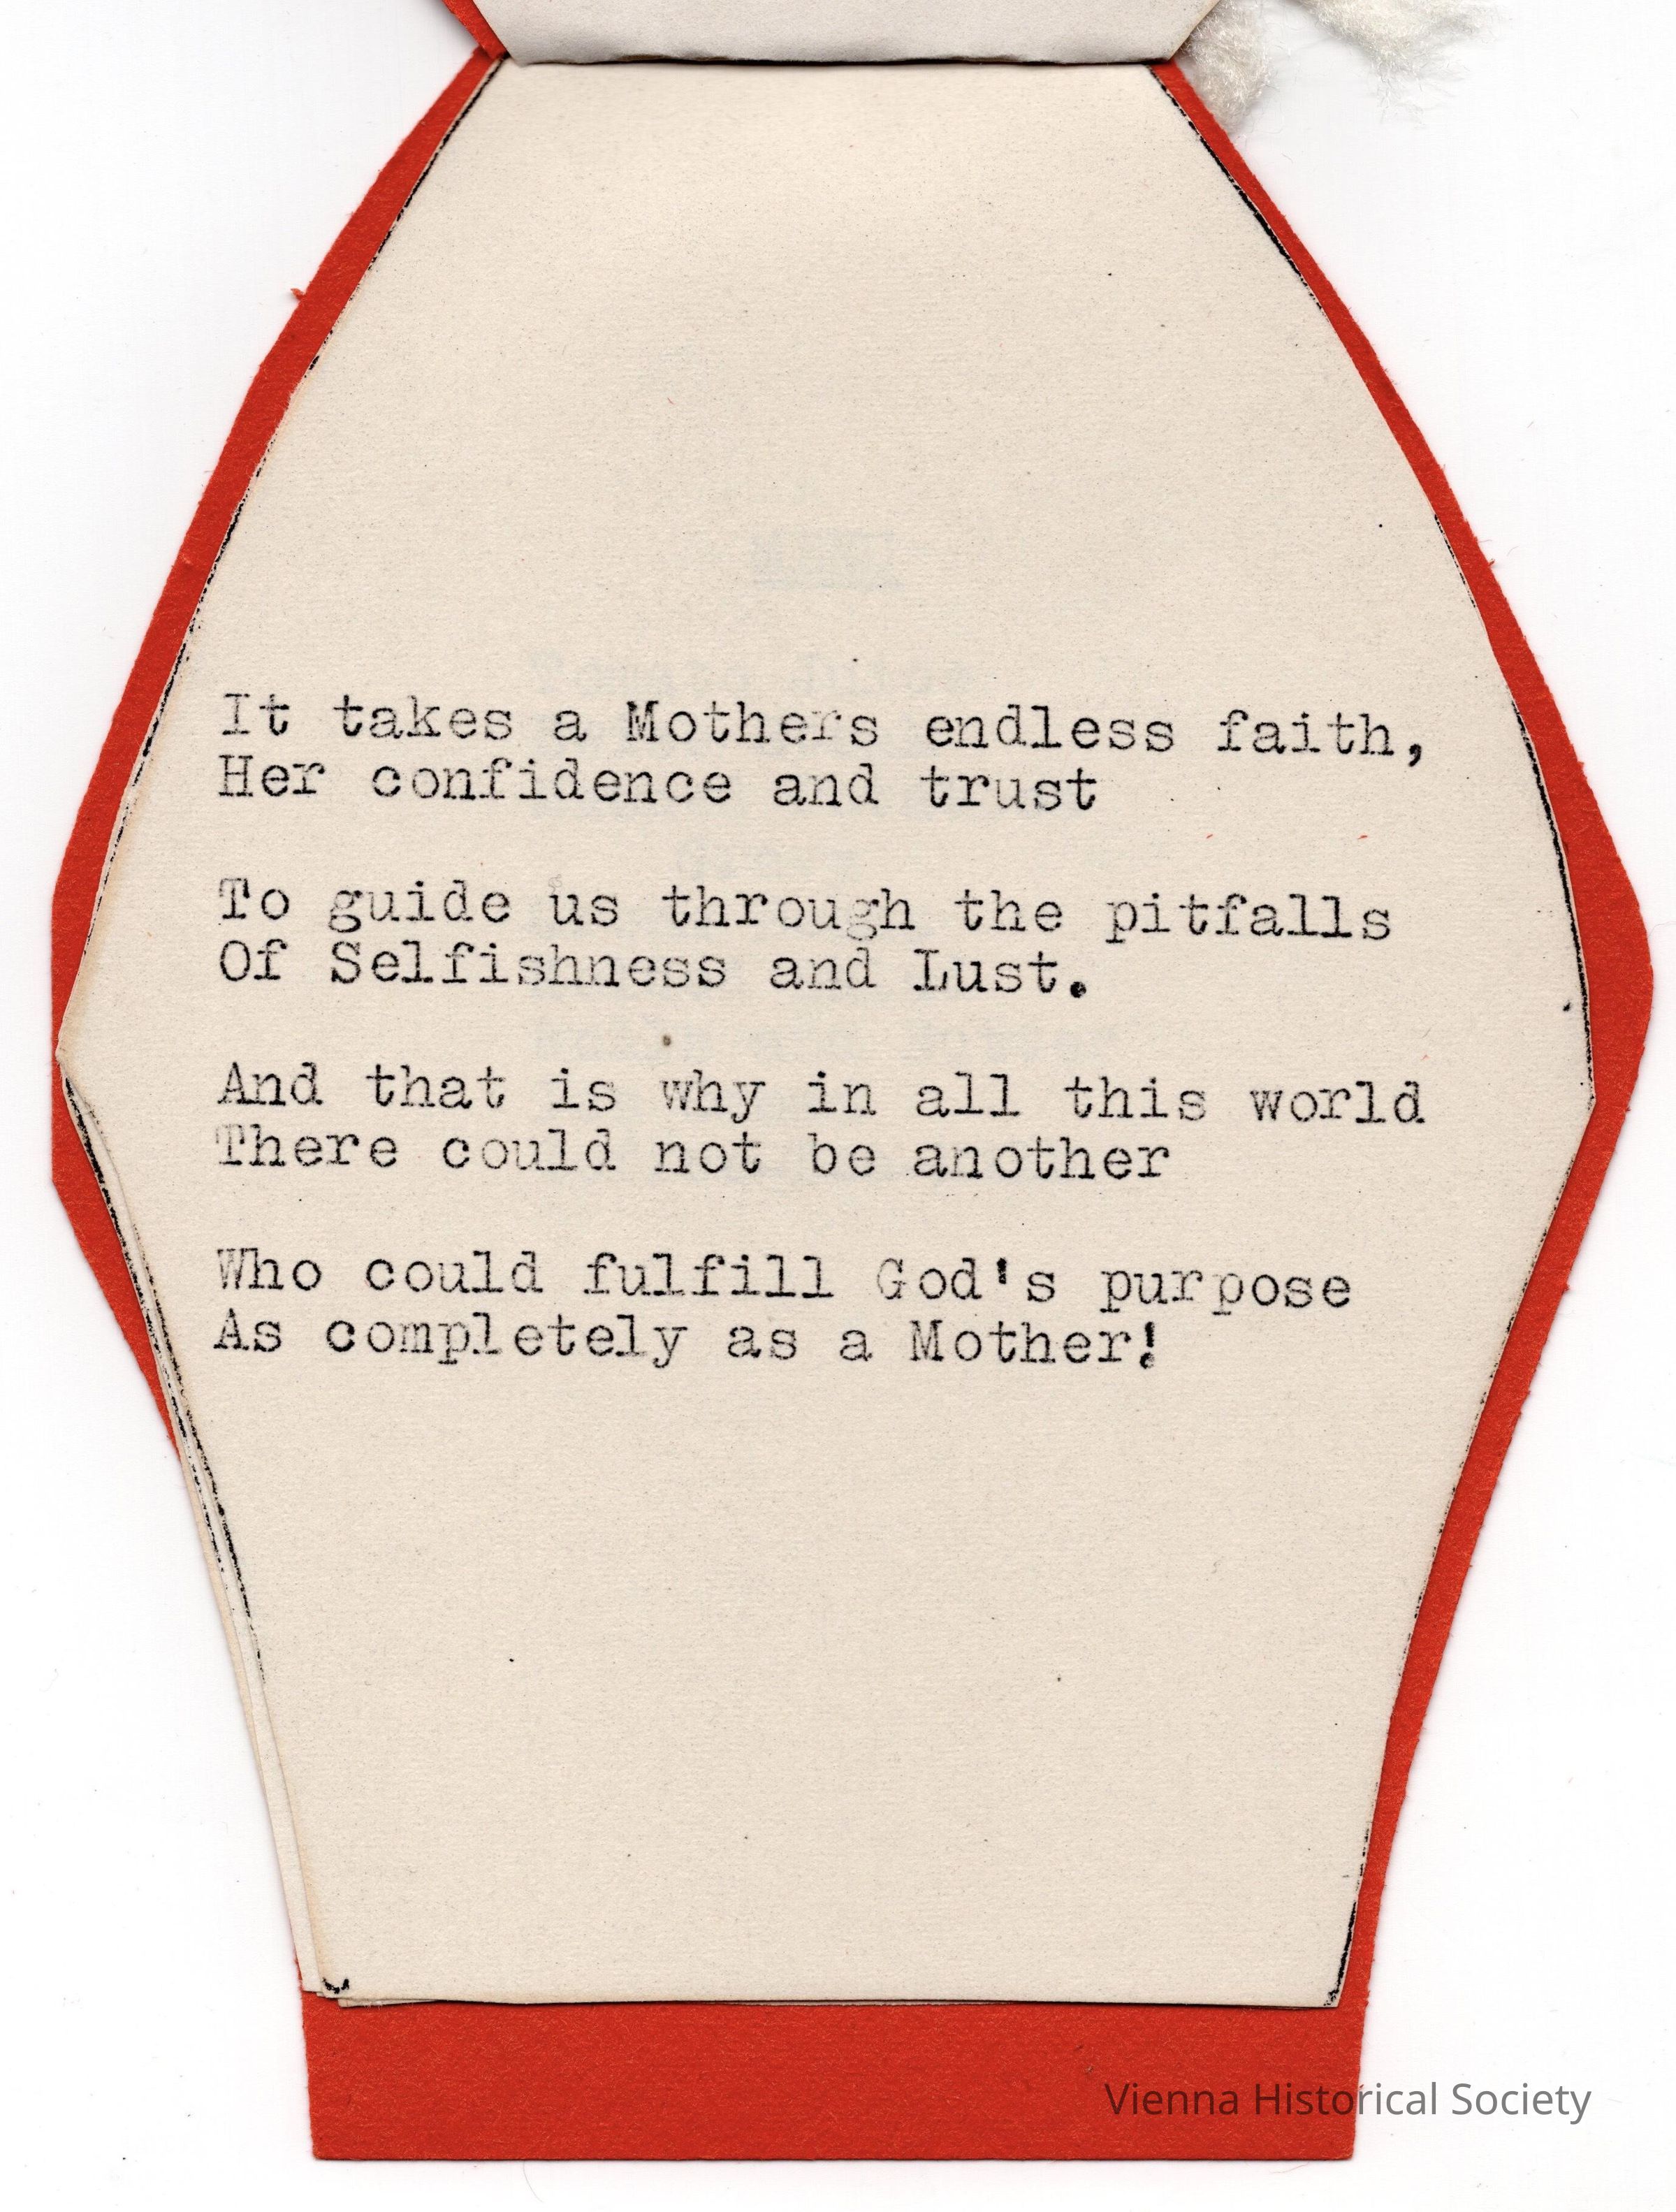 It takes a Mothers endless faith,
Her confidence and trust
To guide us through the pitfalls
Of Selfishness and Lust.
And that is why in all this world
There could not be another
Who could fulfill God's purpose
As completely as a Mother!
Vienna Historical Society